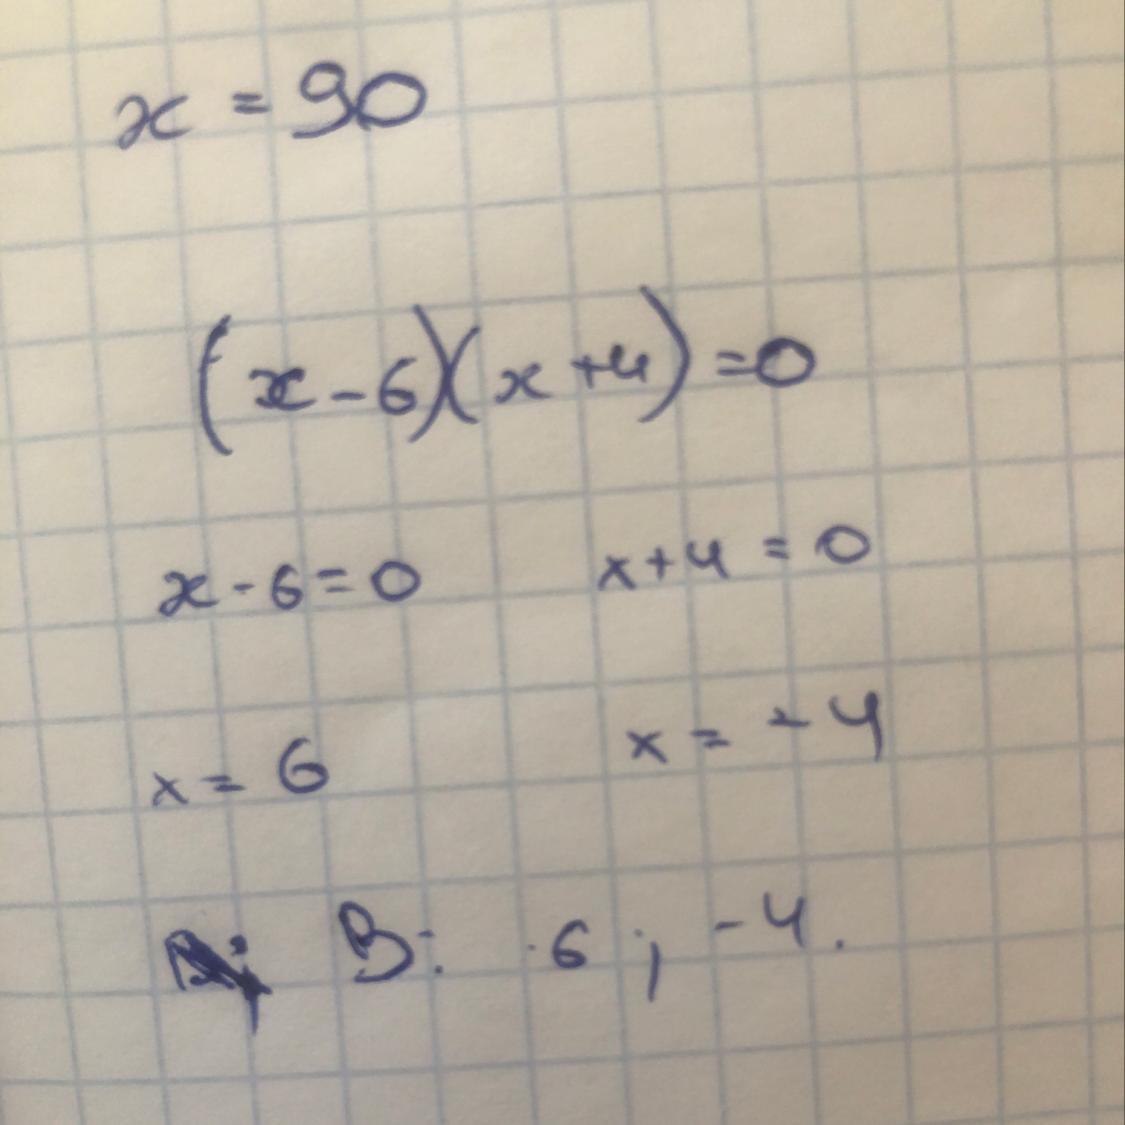 x = 90
(x - 6)(x + 4) = 0
x - 6 = 0 x + 4 = 0
x = 6 x = - 4
В: 6 ; - 4.